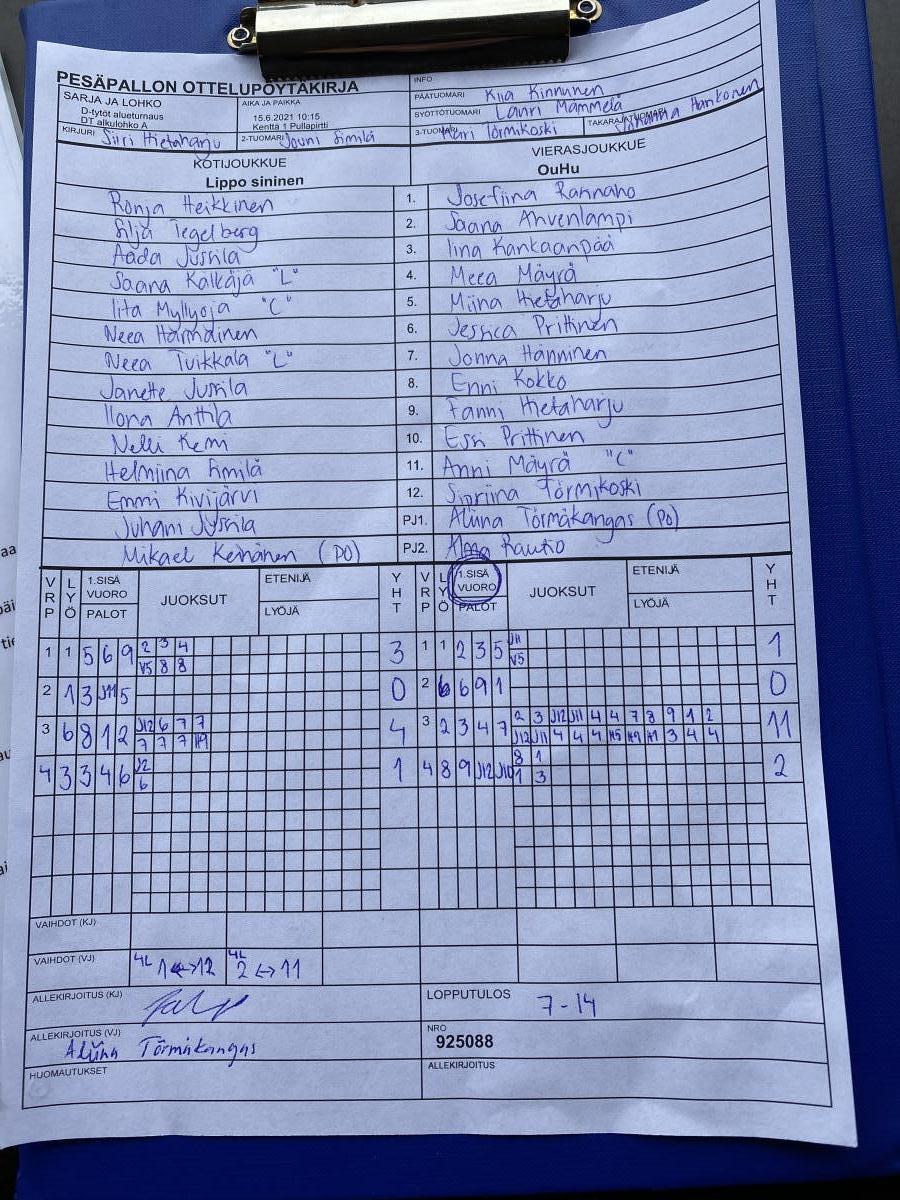 PESÄPALLON OTTELUPÖYTÄKIRJA
INFO
SARJA JA LOHKO
D-tytöt alueturnaus
DT alkulohko A
AIKA JA PAIKKA
15.6.2021 10:15
Kenttä 1 Pullapirtti
PÄÄTUOMARI Kiia Kinnunen
SYÖTTÖTUOMARI Lauri Mämmelä
KIRJURI Siiri Hietaharju
2-TUOMARI Jouni Similä
3-TUOMARI Törmikoski
TAKARAJATUOMARI Hankonen
KOTIJOUKKUE
Lippo sininen
VIERASJOUKKUE
OuHu
Ronja Heikkinen 1. Josefiina Rannaho
Silja Tegelberg 2. Saana Ahvenlampi
Aada Jussila 3. Iina Kankaanpää
Saana Kalkäjä "L" 4. Meea Mäyrä
Iita Myllyoja "C" 5. Miina Hietaharju
Neea Harmainen 6. Jessica Prittinen
Neea Tuikkala "L" 7. Jonna Hänninen
Janette Jussila 8. Enni Kokko
Ilona Anttila 9. Fanni Hietaharju
Nelli Kemi 10. Essi Prittinen
Helmiina Similä 11. Anni Mäyrä "C"
Emmi Kivijärvi 12. Siiriina Törmikoski
Juhani Jussila PJ1. Aliina Törmäkangas (PO)
Mikael Keinänen (PO) PJ2. Alma Rautio
VRP LYÖ 1.SISÄ VUORO PALOT JUOKSUT ETENIJÄ LYÖJÄ YHT VRP LYÖ 1.SISÄ VUORO PALOT JUOKSUT ETENIJÄ LYÖJÄ YHT
2 3 4 J11
1 1 5 6 9 3 1 1 2 3 5 1
V5 8 8 V5
2 1 3 J11 5 0 2 6 6 9 1 0
J12 6 7 7 2 3 J12 J11 4 4 7 8 9 1 2
3 6 8 1 2 4 3 2 3 4 7 11
7 7 7 H9 J12 J11 4 4 4 H5 H7 H1 3 4 4
J2 8 1
4 3 3 4 6 1 4 8 9 J12 J10 2
6 1 3
VAIHDOT (KJ)
VAIHDOT (VJ) 4L 1<->12 4L 2<->11
ALLEKIRJOITUS (KJ)
LOPPUTULOS 7-14
ALLEKIRJOITUS (VJ)
Aliina Törmäkangas
NRO
925088
HUOMAUTUKSET
ALLEKIRJOITUS